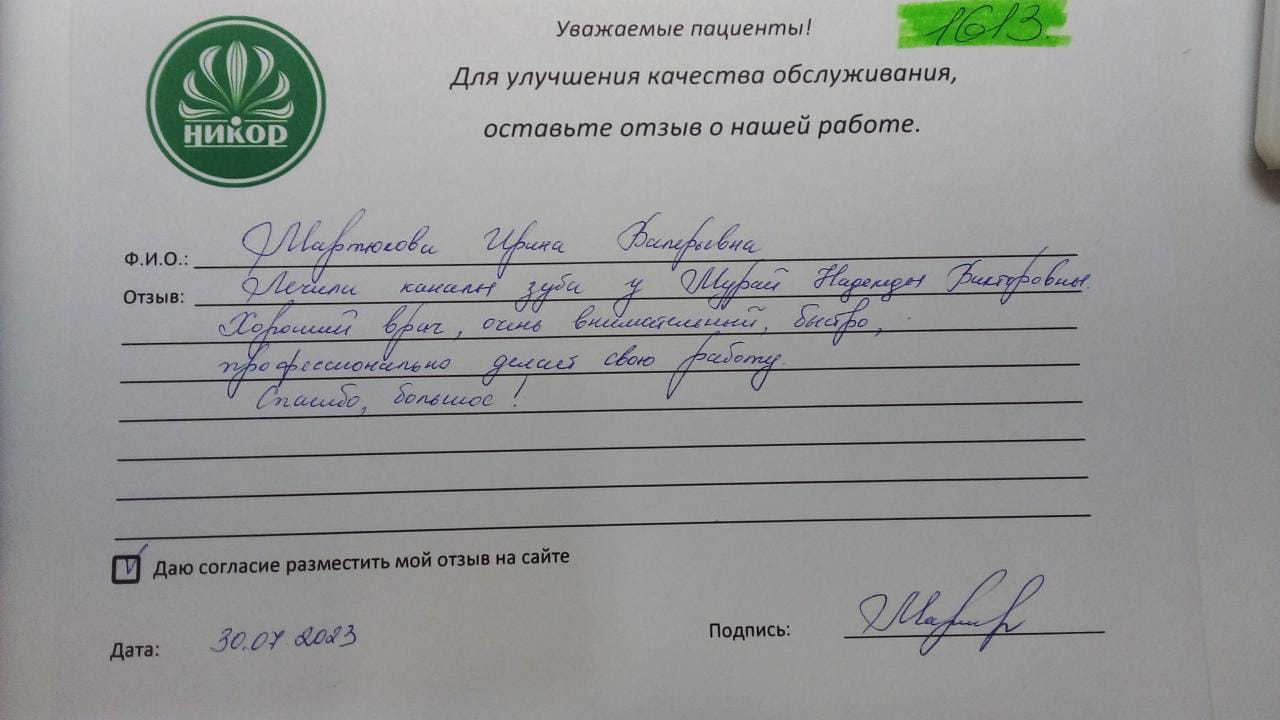 Уважаемые пациенты!
1613.
Для улучшения качества обслуживания,
оставьте отзыв о нашей работе.
НИКОР
Ф.И.О.: Мартюкова Ирина Валерьевна
Отзыв: Лечили каналы зуба у Мурай Надежды Викторовны.
Хороший врач, очень внимательный, быстро,
профессионально делает свою работу.
Спасибо, большое!
Даю согласие разместить мой отзыв на сайте
Дата: 30.07.2023
Подпись: